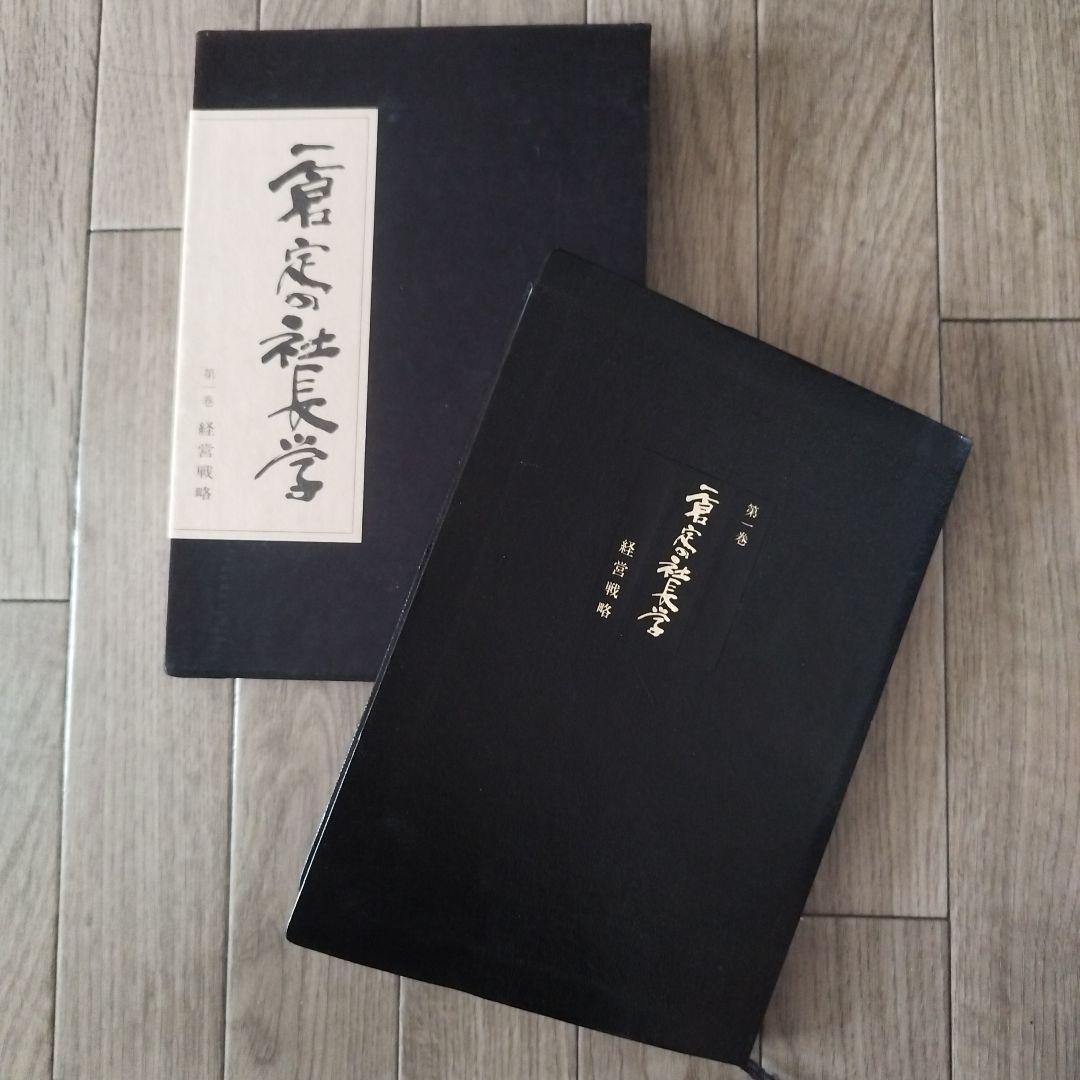 一倉定の社長学
第一巻 経営戦略
第一巻
一倉定の社長学
経営戦略